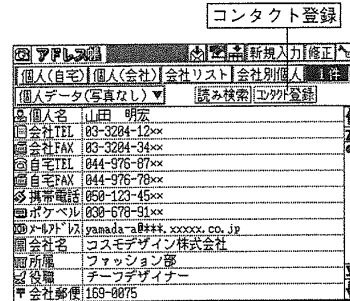 コンタクト登録
アドレス帳 新規入力 修正
個人(自宅) 個人(会社) 会社リスト 会社別個人 1件
個人データ(写真なし)▼ 読み検索 コンタクト登録
個人名 山田 明宏
会社TEL 03-3204-12××
会社FAX 03-3204-34××
自宅TEL 044-976-87××
自宅FAX 044-976-78××
携帯電話 050-123-45××
ポケベル 030-678-91××
メールアドレス yamada-a@***.xxxxx.co.jp
会社名 コスモデザイン株式会社
所属 ファッション部
役職 チーフデザイナー
〒会社郵便 169-0075